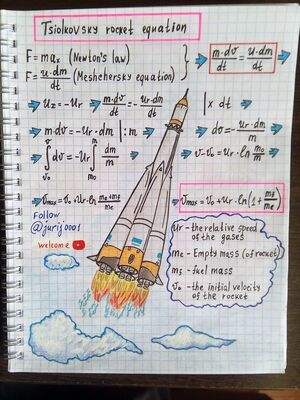 Tsiolkovsky rocket equation
F = maₓ (Newton's law)
F = u·dm/dt (Meshchersky equation)
} ⇒ m·dv/dt = u·dm/dt
⇒ Ux = -Ur ⇒ m·dv/dt = - Ur·dm/dt | x dt
⇒ m·dv = -Ur·dm | : m ⇒ dv = - Ur·dm/m
⇒ ∫ᵥ₀ᵛ dv = -Ur ∫ₘ₀ᵐ dm/m ⇒ v - v₀ = Ur·ln m₀/m
⇒ Vmax = V₀ + Ur·ln (me + mf)/me ⇒ Vmax = V₀ + Ur·ln(1 + mf/me)
Follow
@jurij0001
welcome
Ur - the relative speed
of the gases
me - Empty mass (of rocket)
mf - fuel mass
V₀ - the initial velocity
of the rocket